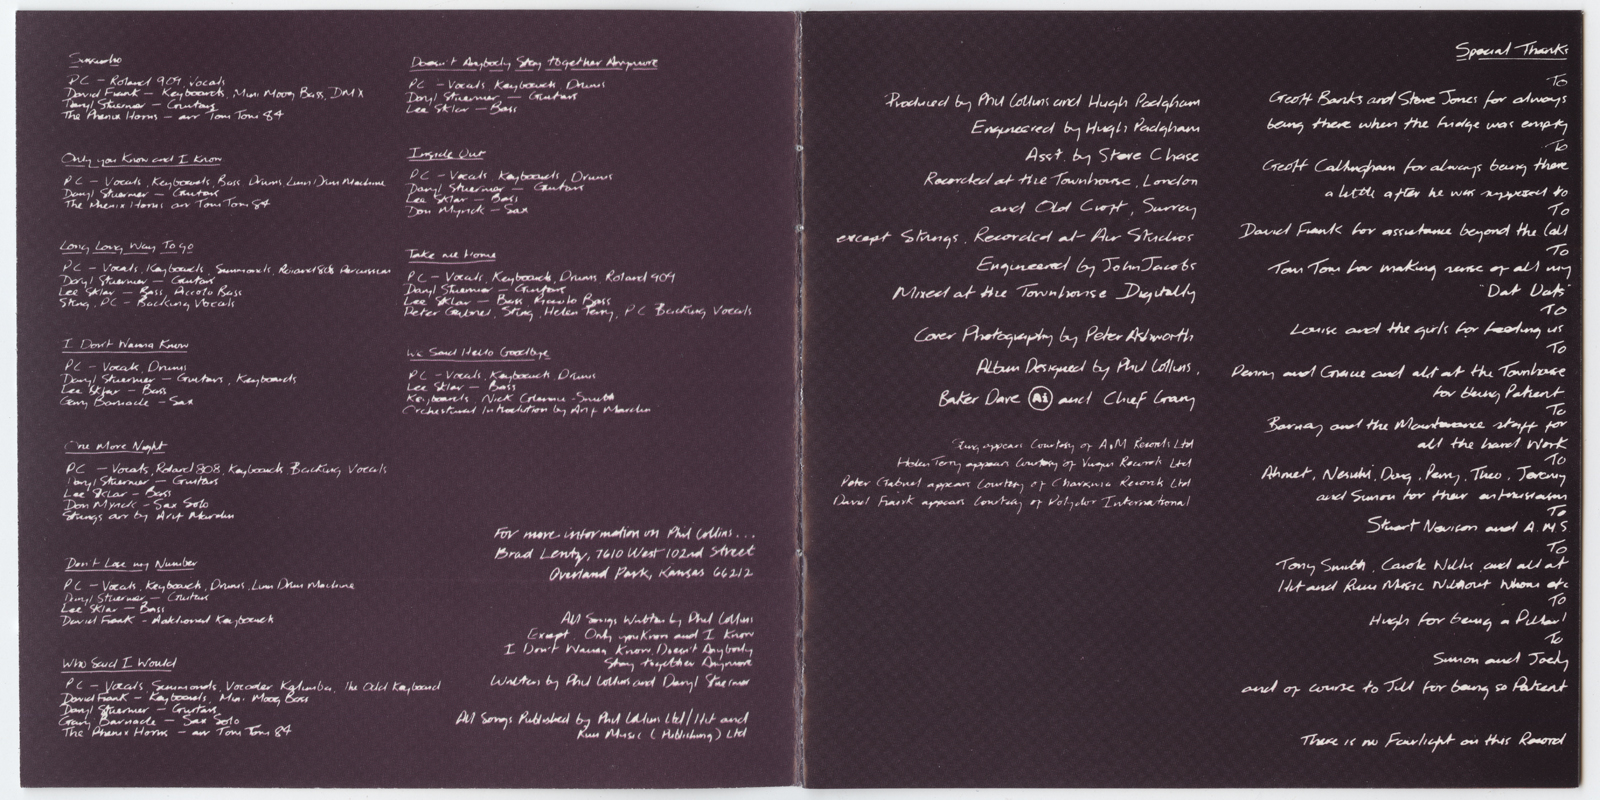 Sussudio
PC - Roland 909, Vocals
David Frank - Keyboards, Mini Moog Bass, DMX
Daryl Stuermer - Guitars
The Phenix Horns - arr Tom Tom 84
Only you Know and I Know
PC - Vocals, Keyboards, Bass Drums, Linn Drum Machine
Daryl Stuermer - Guitars
The Phenix Horns arr Tom Tom 84
Long Long Way To go
PC - Vocals, Keyboards, Simmonds, Roland 808 Percussion
Daryl Stuermer - Guitars
Lee Sklar - Bass, Piccolo Bass
Sting, PC - Backing Vocals
I Don't Wanna Know
PC - Vocals, Drums
Daryl Stuermer - Guitars, Keyboards
Lee Sklar - Bass
Gary Barnacle - Sax
One More Night
PC - Vocals, Roland 808, Keyboards Backing Vocals
Daryl Stuermer - Guitars
Lee Sklar - Bass
Don Myrick - Sax Solo
Strings arr by Arif Mardin
Don't Lose my Number
PC - Vocals, Keyboards, Drums, Linn Drum Machine
Daryl Stuermer - Guitars
Lee Sklar - Bass
David Frank - Additional Keyboards
Who Said I Would
PC - Vocals, Simmonds, Vocoder Kalimba, The Odd Keyboard
David Frank - Keyboards, Mini Moog Bass
Daryl Stuermer - Guitars
Gary Barnacle - Sax Solo
The Phenix Horns - arr Tom Tom 84
Doesn't Anybody Stay together Anymore
PC - Vocals, Keyboards, Drums
Daryl Stuermer - Guitars
Lee Sklar - Bass
Inside Out
PC - Vocals, Keyboards, Drums
Daryl Stuermer - Guitars
Lee Sklar - Bass
Don Myrick - Sax
Take me Home
PC - Vocals, Keyboards, Drums Roland 909
Daryl Stuermer - Guitars
Lee Sklar - Bass, Piccolo Bass
Peter Gabriel, Sting, Helen Terry, PC Backing Vocals
We Said Hello Goodbye
PC - Vocals, Keyboards, Drums
Lee Sklar - Bass
Keyboards, Nick Glennie-Smith
Orchestral Introduction by Arif Mardin
For more information on Phil Collins...
Brad Lentz, 7610 West 102nd Street
Overland Park, Kansas 66212
All Songs Written by Phil Collins
Except, Only you Know and I Know
I Don't Wanna Know, Doesn't Anybody
Stay together Anymore
Written by Phil Collins and Daryl Stuermer
All Songs Published by Phil Collins Ltd/Hit and
Run Music (Publishing) Ltd
Produced by Phil Collins and Hugh Padgham
Engineered by Hugh Padgham
Asst. by Steve Chase
Recorded at the Townhouse, London
and Old Croft, Surrey
except Strings, Recorded at Air Studios
Engineered by John Jacobs
Mixed at the Townhouse Digitally
Cover Photography by Peter Ashworth
Album Designed by Phil Collins,
Baker Dave Ai and Chief Gary
Sting appears Courtesy of A+M Records Ltd
Helen Terry appears Courtesy of Virgin Records Ltd
Peter Gabriel appears Courtesy of Charisma Records Ltd
David Frank appears Courtesy of Polydor International
Special Thanks
To
Geoff Banks and Steve Jones for always
being there when the fridge was empty
To
Geoff Callingham for always being there
a little after he was supposed to
To
David Frank for assistance beyond the Call
To
Tom Tom for making sense of all my
"Dat Dats"
To
Louise and the girls for feeding us
To
Penny and Gracie and all at the Townhouse
for being Patient
To
Barney and the Maintenance staff for
all the hard Work
To
Ahmet, Nesuhi, Doug, Perry, Theo, Jeremy
and Simon for their enthusiasm
To
Stuart Nevison and A.M.S
To
Tony Smith, Carole Willis, and all at
Hit and Run Music Without Whom etc
To
Hugh for being a Pillar!
To
Simon and Joely
and of course to Jill for being so Patient
There is no Fairlight on this Record